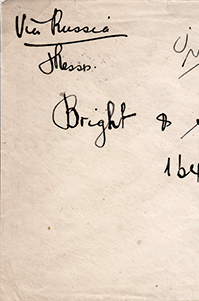 Via Russia
Messrs.
Bright &
164